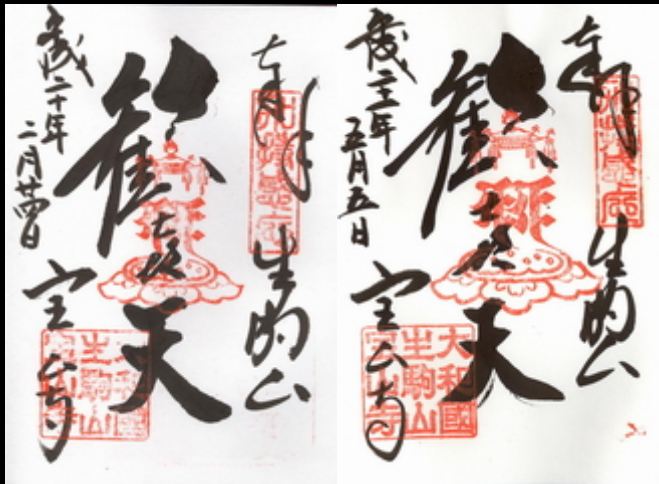 奉拝
生駒山
歓喜天
平成二十年
二月廿四日
宝山寺
大和國
生駒山
寳山寺
奉拝
生駒山
歓喜天
五月五日
宝山寺
大和國
生駒山
寳山寺